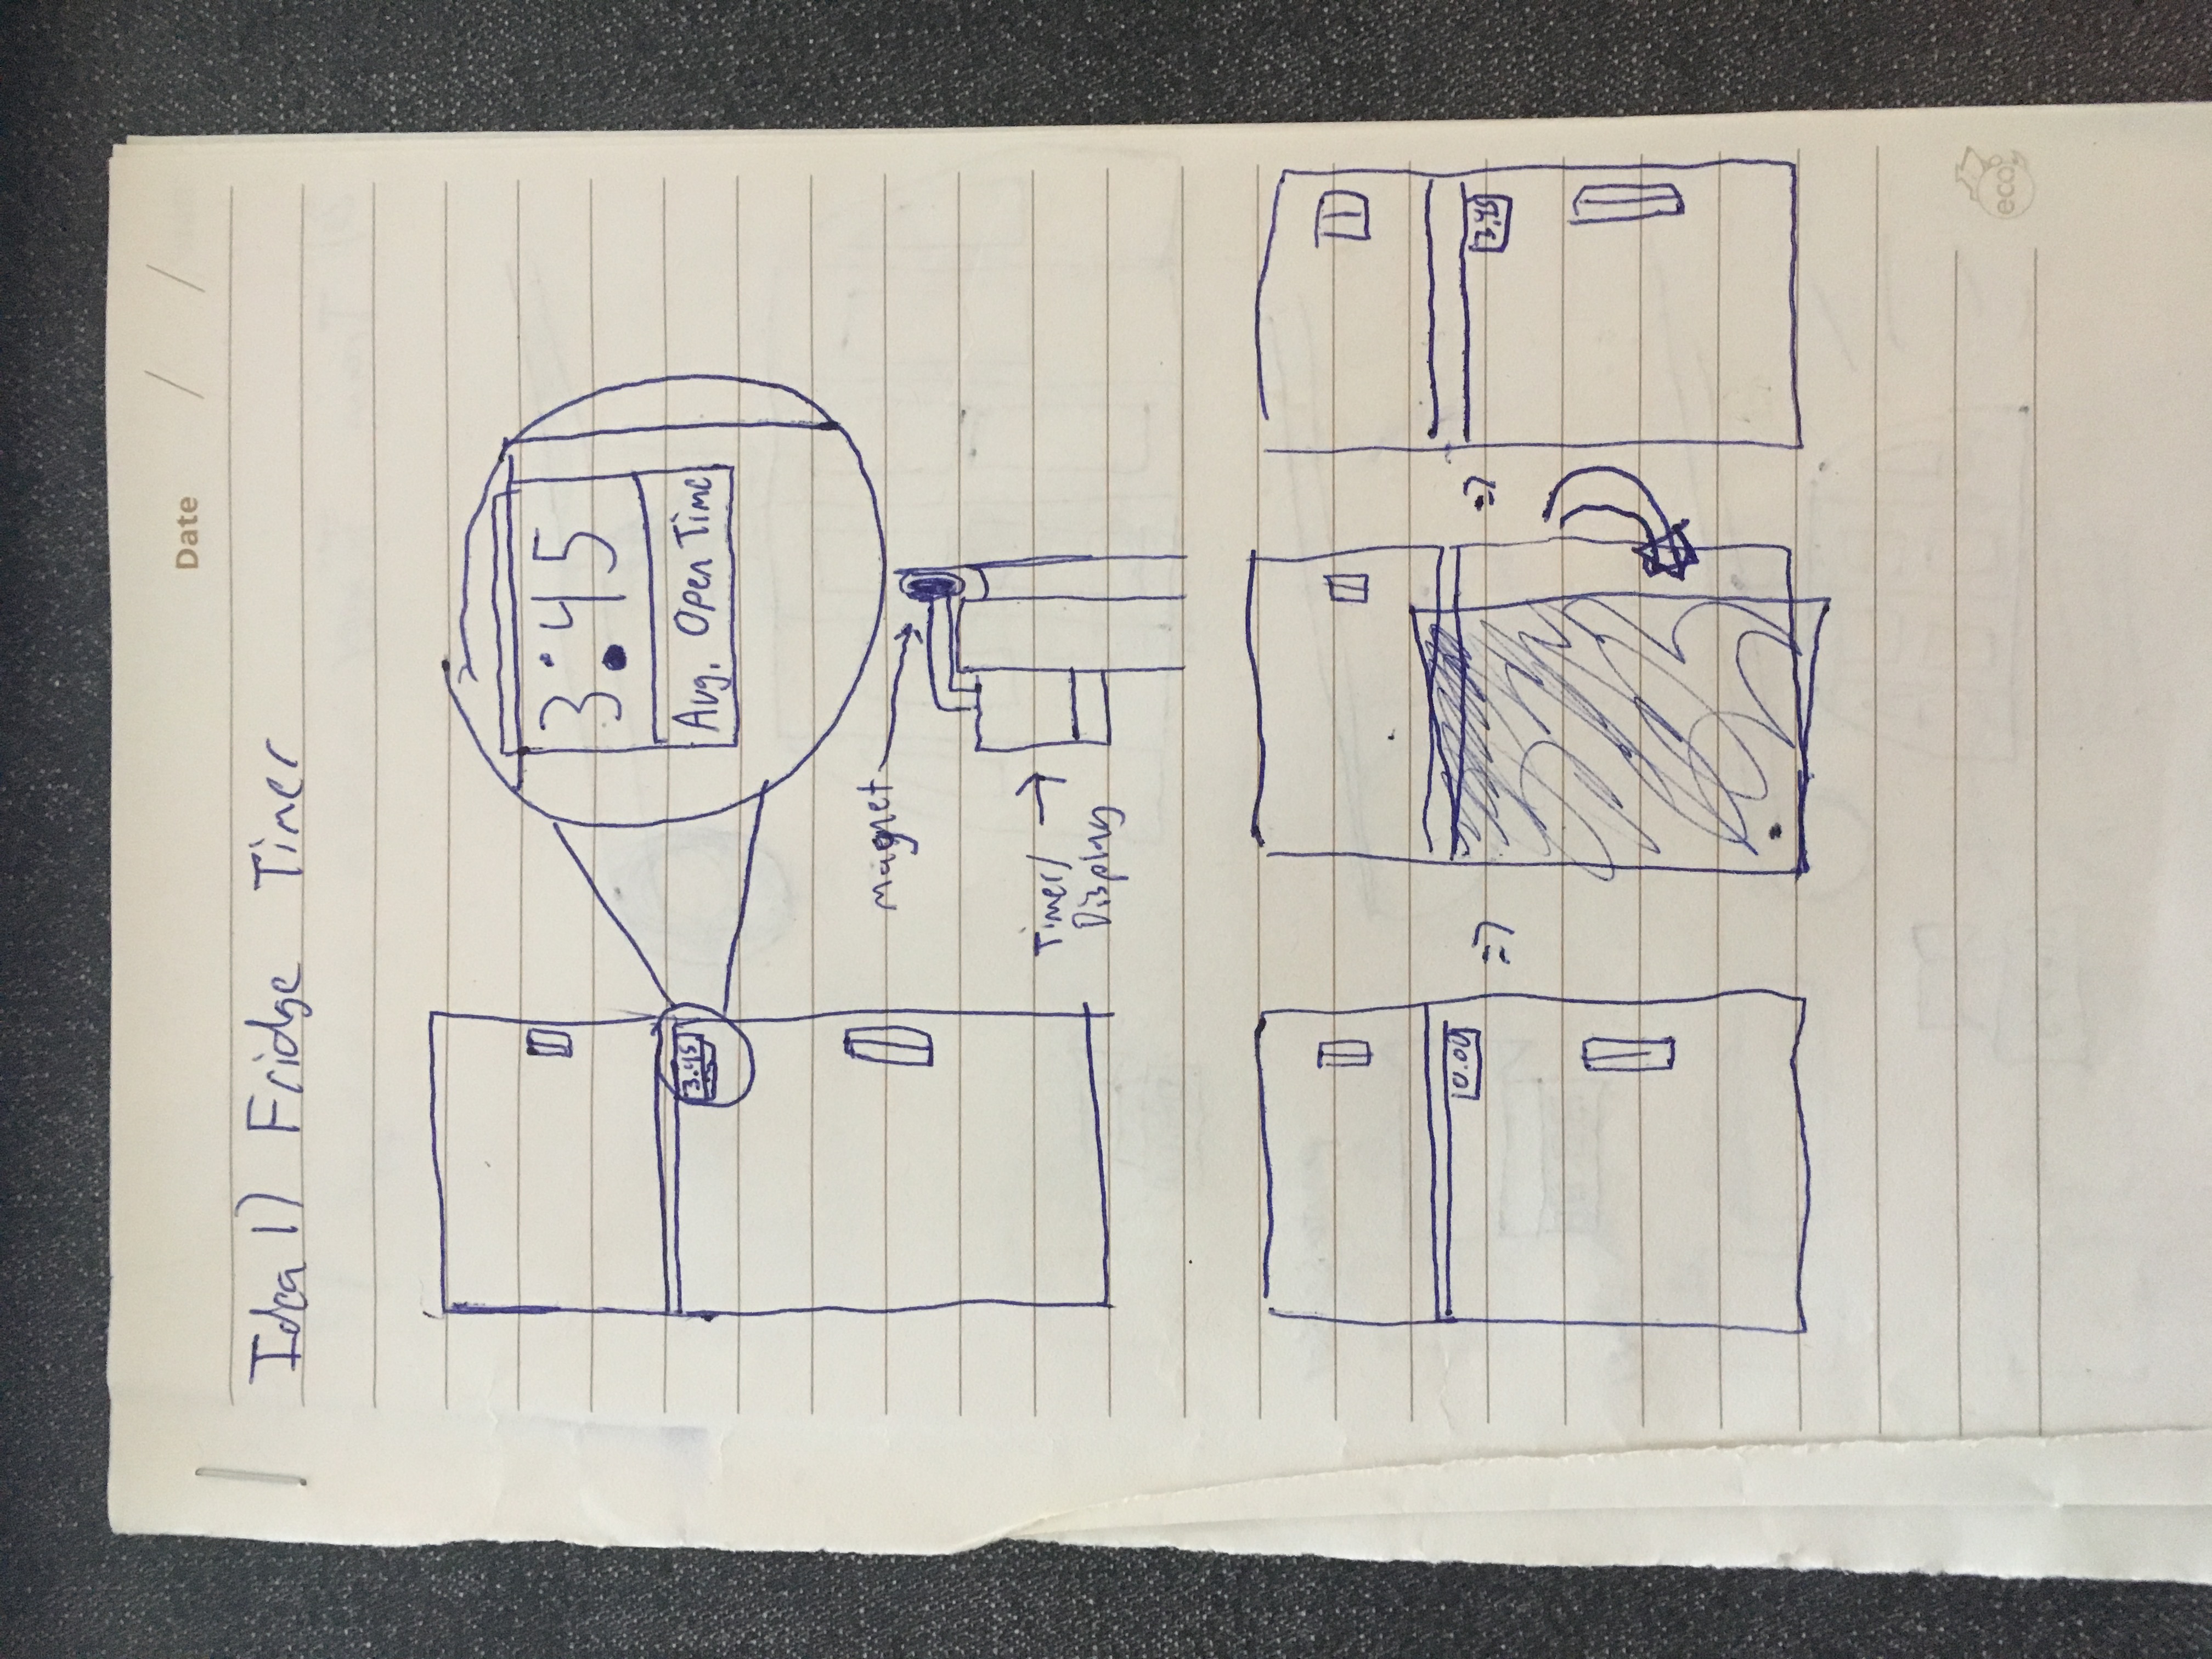 Date / /
Idea 1) Fridge Timer
3:45
Avg. Open Time
3.45
magnet
Timer/
Display
0.00
=>
=>
3.45
eco